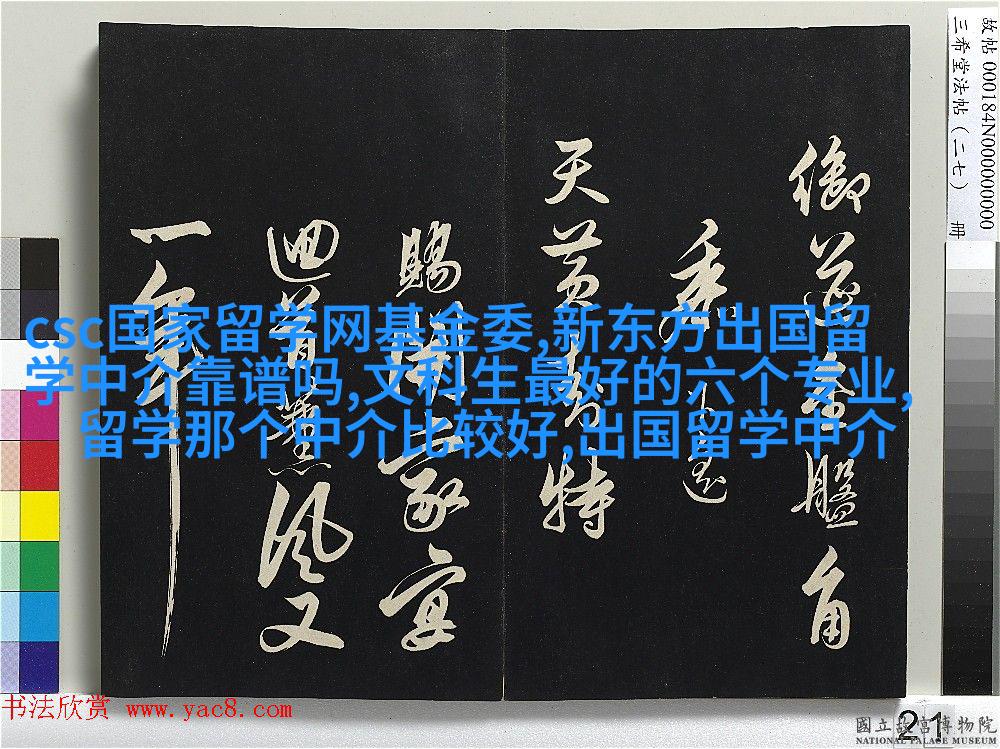 故帖 000184N000000000
三希堂法帖(二七) 冊
御 金盤角
天黄封特
賜 家宴
迴首薰風又
一年
csc国家留学网基金委,新东方出国留
学中介靠谱吗,文科生最好的六个专业,
留学那个中介比较好,出国留学中介
书法欣赏 www.yac8.com
21
國立故宮博物院
NATIONAL PALACE MUSEUM